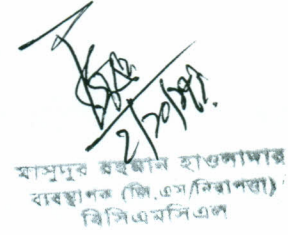 ২/১০/১৭
মাসুদুর রহমান হাওলাদার
ব্যবস্থাপক (জি.এস/নিরাপত্তা)
বিসিএমসিএল